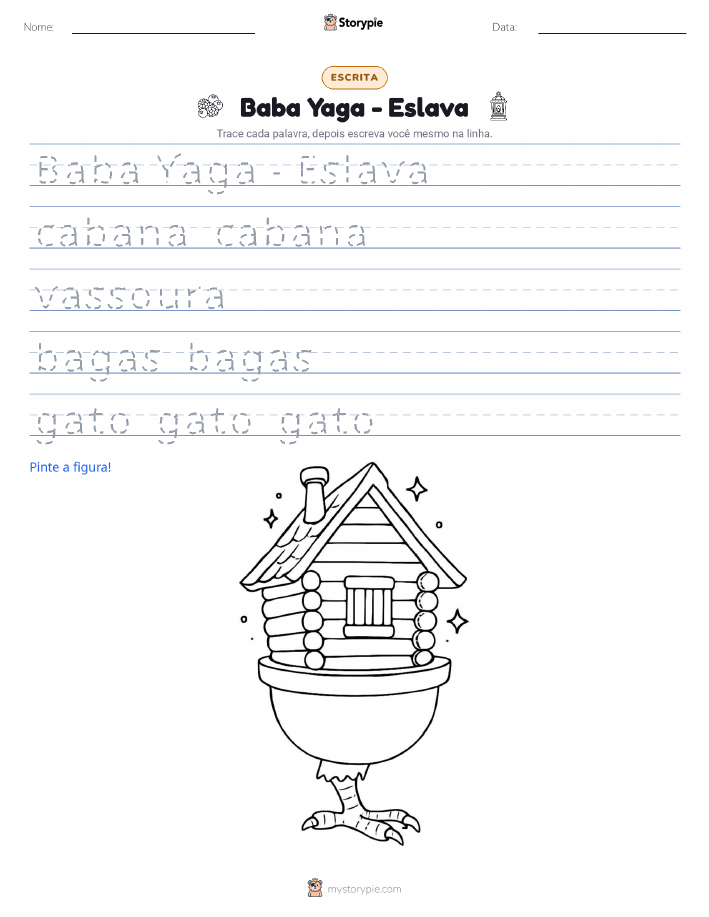 Nome:
Storypie
Data:
ESCRITA
Baba Yaga - Eslava
Trace cada palavra, depois escreva você mesmo na linha.
Baba Yaga - Eslava
cabana cabana
vassoura
bagas bagas
gato gato gato
Pinte a figura!
mystorypie.com